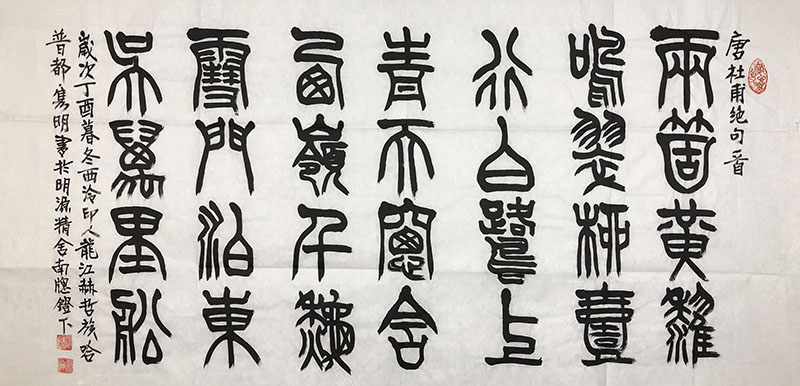 唐杜甫绝句一首
兩箇黃鸝
鳴翠柳壹
行白鷺上
青天窗含
西嶺千秋
雪門泊東
吳萬里船
歲次丁酉暮冬西泠印人龍江赫哲族哈
普都隽明書於明源精舍南牕鐙下